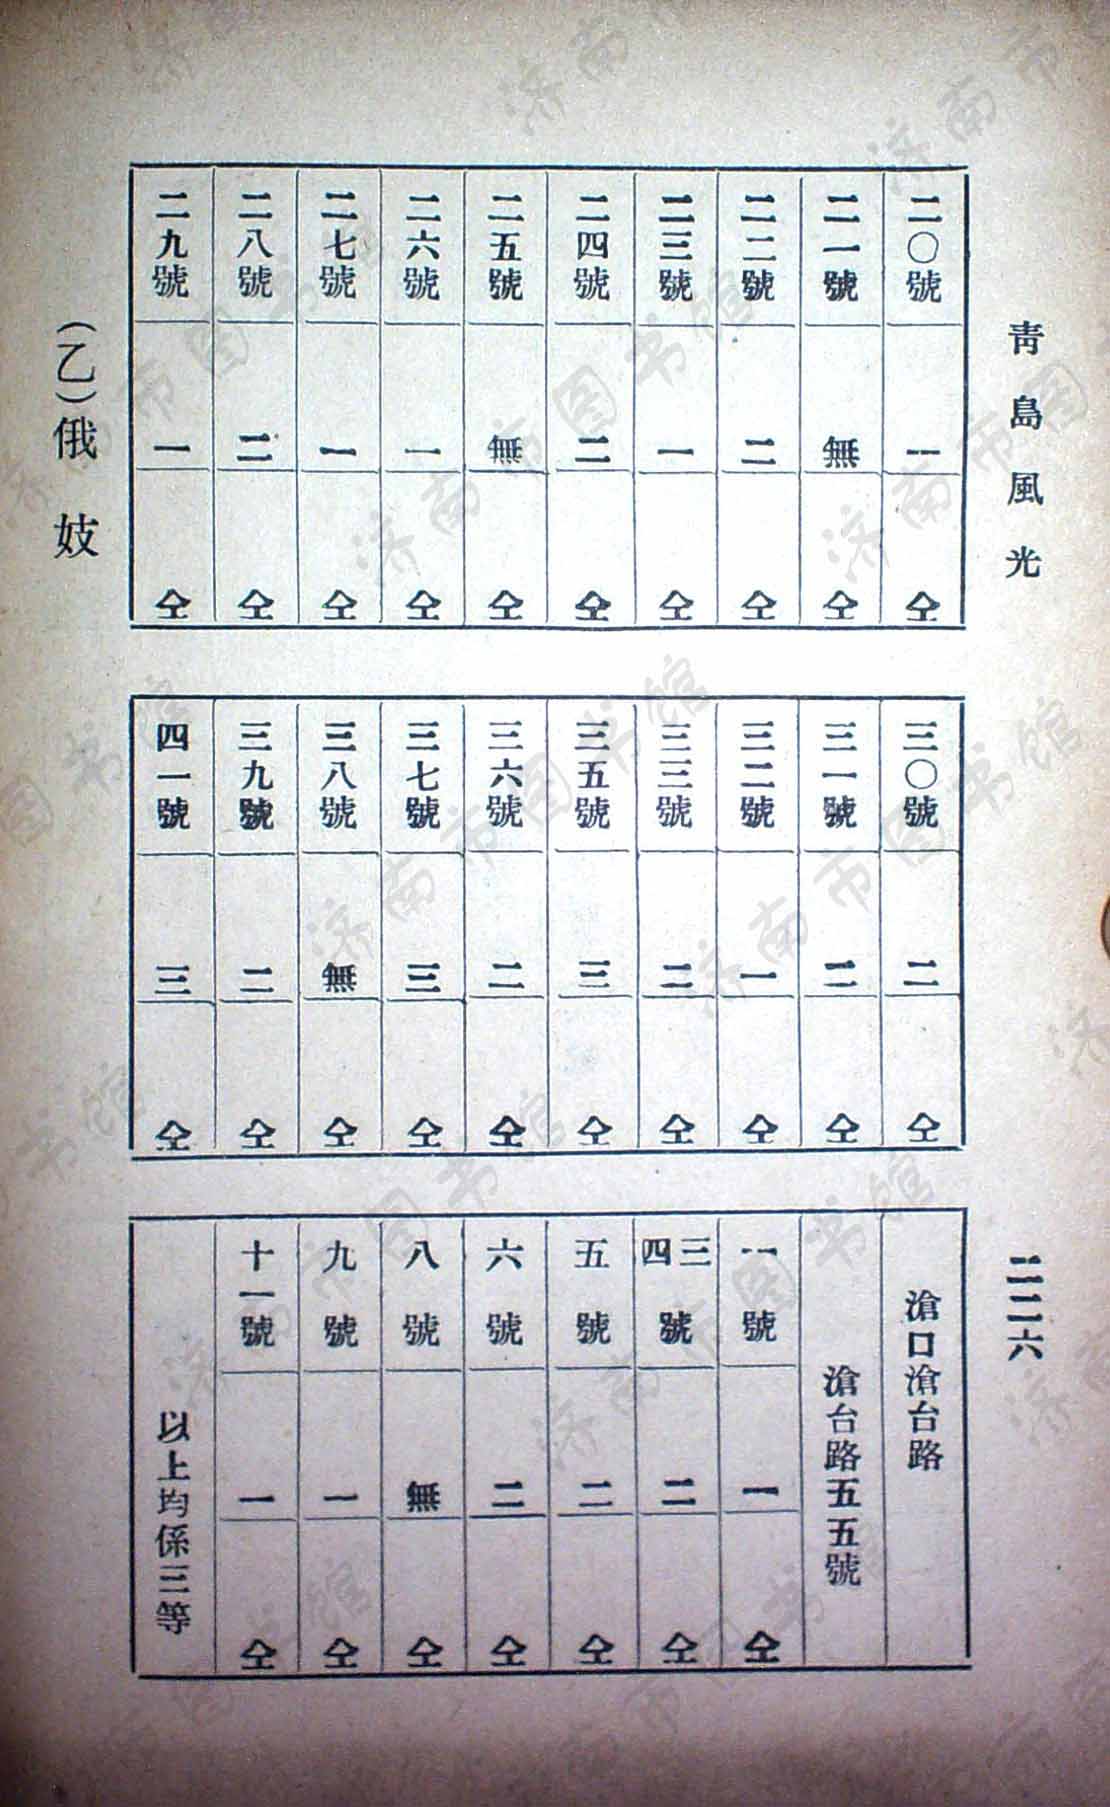 青島風光
二二六
二〇號 一 仝
二一號 無 仝
二二號 二 仝
二三號 一 仝
二四號 二 仝
二五號 無 仝
二六號 一 仝
二七號 一 仝
二八號 二 仝
二九號 一 仝
三〇號 二 仝
三一號 二 仝
三二號 一 仝
三三號 二 仝
三五號 三 仝
三六號 二 仝
三七號 三 仝
三八號 無 仝
三九號 二 仝
四一號 三 仝
滄口滄台路
滄台路五五號
一號 一 仝
三四號 二 仝
五號 二 仝
六號 二 仝
八號 無 仝
九號 一 仝
十一號 一 仝
以上均係三等
(乙)俄妓
济南市图书馆